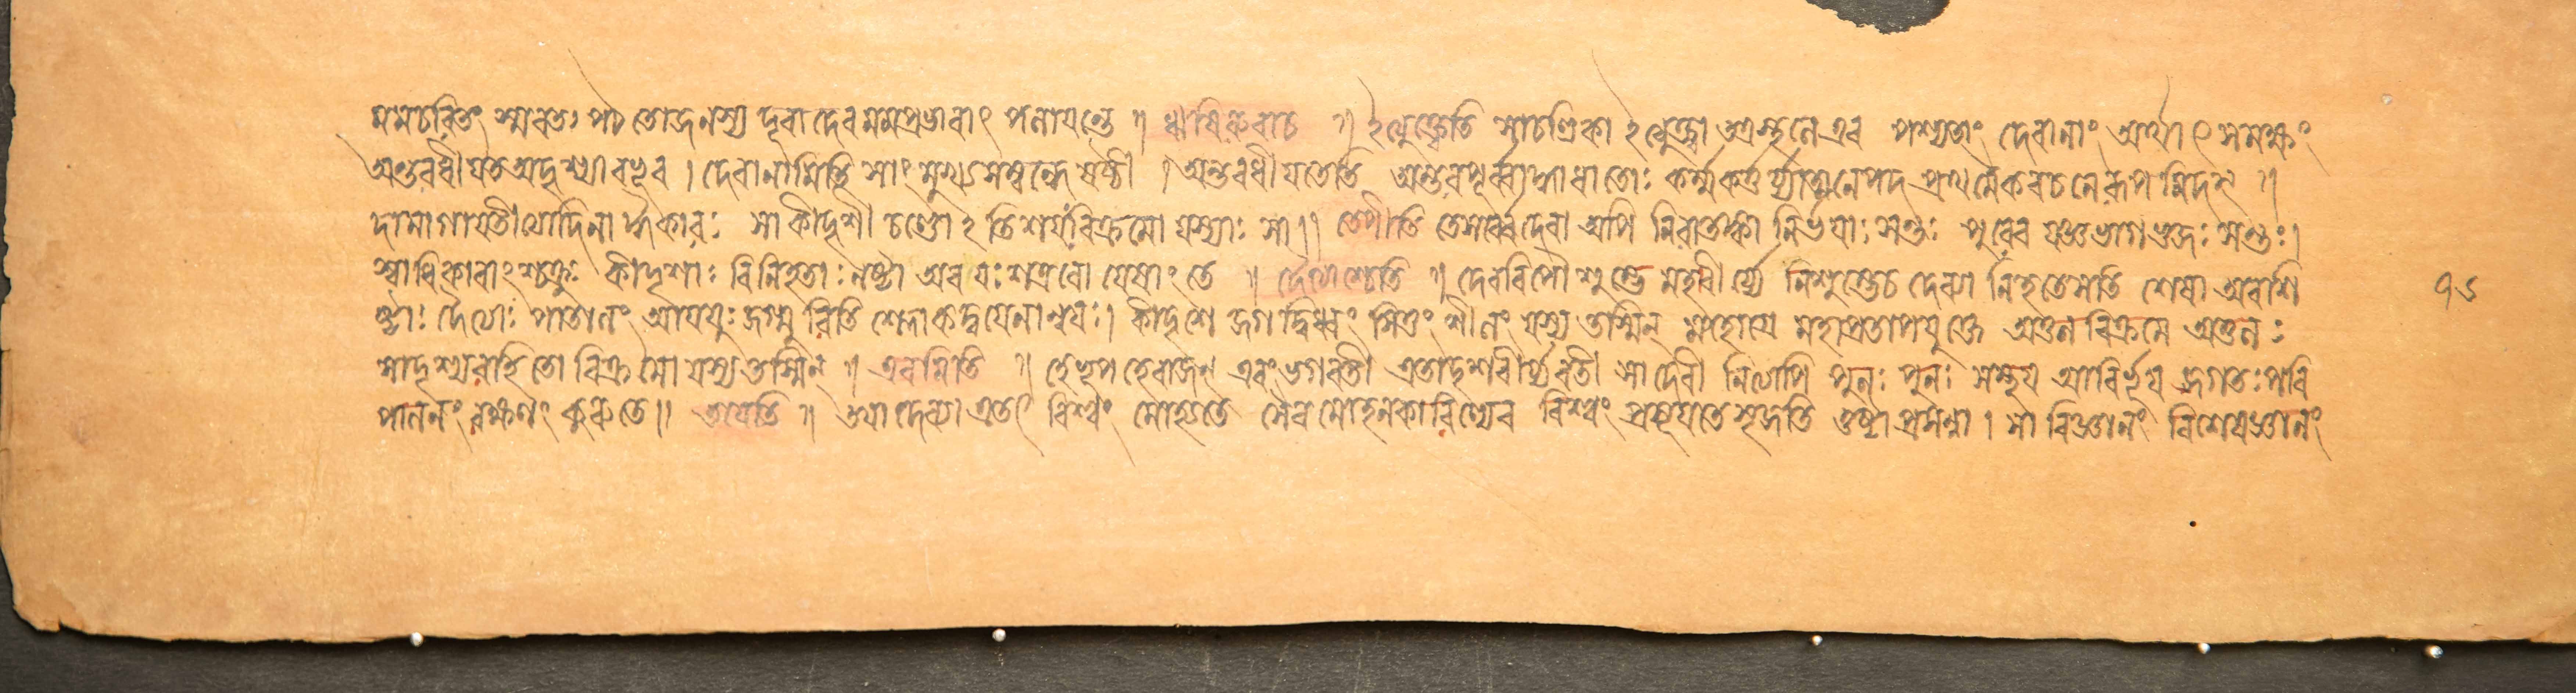 মমচরিতং স্মরতঃ পঠতোজনস্য দূরাদেব মমপ্রভাবাৎ পলায়ন্তে ॥ ঋষিরুবাচ ॥ ইত্যুক্ত্বেতি সাচণ্ডিকা ইত্যুক্ত্বা এব পশ্যতাং দেবানাং অর্থাৎ সমক্ষং
অন্তরধীয়ত অদৃশ্যা বভূব । দেবানামিতি সাং মুখ্য সম্বন্ধে ষষ্ঠী । অন্তরধীয়তেতি অন্তরপূর্ব্ব ধাতোঃ কর্ম্মকর্ত্তর্য্যাত্মনেপদ প্রথমৈকবচনে রূপমিদম্ ॥
সা কীদৃশী চণ্ডোঽতিশয়বিক্রমো যস্যাঃ সা ॥ তেপীতি তেসর্ব্বেদেবা অপি নিরাতঙ্কা নির্ভয়াঃ সন্তঃ পুরেব যজ্ঞভাগভুজঃ সন্তঃ ।
স্বাধিকারাংশ্চক্রুঃ কীদৃশাঃ বিনিহতাঃ নষ্টা অরয়ঃ শত্রবো যেষাং তে ॥ দৈত্যাশ্চেতি ॥ দেবরিপৌ শুম্ভে মহাবীর্য্যে নিশুম্ভেচ দেব্যা নিহতেসতি শেষা অবশি
ষ্টাঃ দৈত্যাঃ পাতালং আযযুঃ জগ্মুরিতি শ্লোকদ্বয়েনান্বয়ঃ । কীদৃশে জগদ্বিধ্বং সিতুং শীলং যস্য তস্মিন্ মহোগ্রে মহাপ্রতাপযুক্তে অতুল বিক্রমে অতুলঃ
সাদৃশ্যরহিতো বিক্রমো যস্য তস্মিন্ ॥ এবমিতি ॥ হেভূপ হেরাজন্ এবং ভগবতী এতাদৃশবীর্য্যবতী সা দেবী নিত্যাপি পুনঃ পুনঃ সম্ভূয় আবির্ভূয় জগতঃ পরি
পালনং রক্ষণং কুরুতে ॥ তয়েতি ॥ তয়া দেব্যা এতৎ বিশ্বং মোহ্যতে সৈব মোহনকারিণ্যেব বিশ্বং প্রসূয়তে সৃজতি তুষ্টা প্রসন্না । সা বিজ্ঞানং বিশেষজ্ঞানং